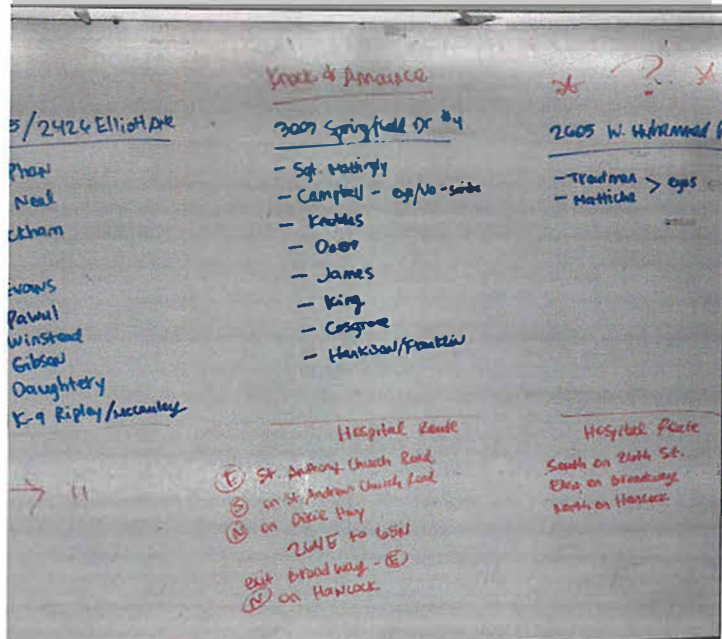 5/2424 Elliott Ave
Phan
Neal
ckham
Evans
Pawul
Winstead
Gibson
Daughtery
K-9 Ripley/McCauley
→ 11
Knock & Announce
3003 Springfield Dr #4
- Sgt. Mattingly
- Campbell - eye/vo -
- Knobles
-
- James
- King
- Cosgrove
- Hankison/Franklin
Hospital Route
(E) St. Anthony Church Road
(S) on St. Andrews Church Road
(N) on Dixie Hwy
264E to 65N
exit Broadway - (E)
(N) on Hancock
☆ ? ☆
2605 W. Muhammad
- Troutman > eyes
- Hattiche
Hospital Route
South on 26th St.
East on Broadway
North on Hancock